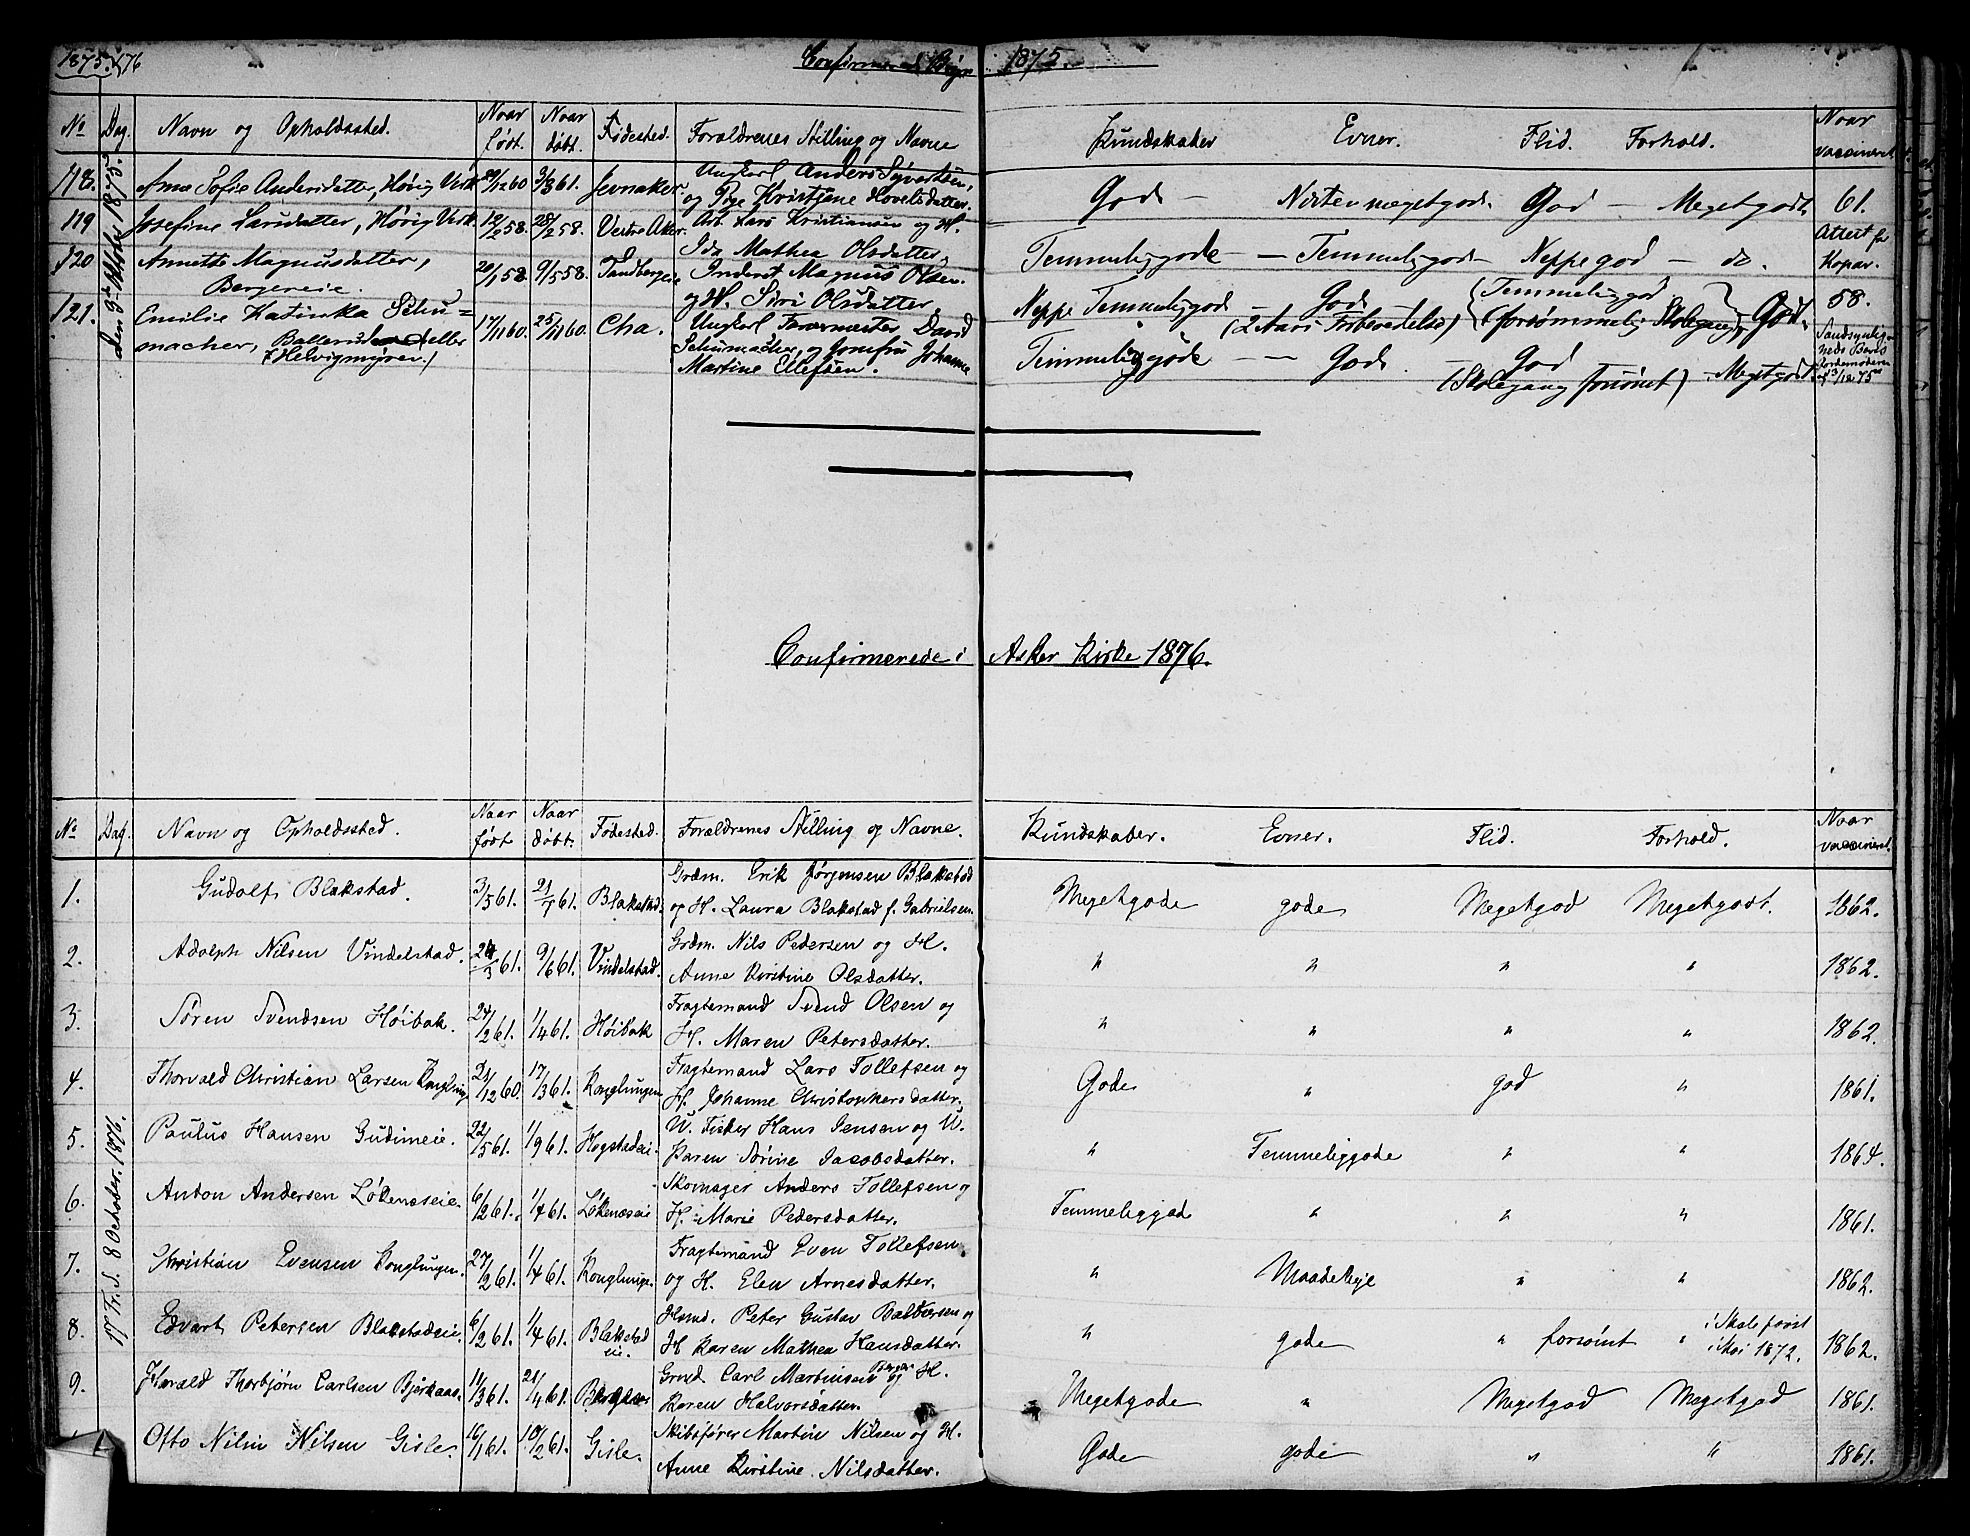 1875. 76 Confirmerede 1875.
No Dag. Navn og Opholdssted. Naar født. Naar døbt. Fødested. Forældrenes Stilling og Navne Kundskaber Evner. Flid. Forhold. Naar vaccineret
den 3die Oktober 1875
118. Anna Sofie Andersdatter, Hørig Verk 29/12 60 3/3 61. Jevnaker. Ungkarl Anders Syvertsen,
og Pige Kristjane Hovelsdatter. Gode — Nisten megetgode God — Megetgodt 61.
119 Josefine Larsdatter, Hørig Verk 12/2 58. 28/2 58. Vestre Aker. Arb. Lars Kristiansen og H.
Ida Mathea Olsdatter, Temmeliggode — Temmeliggode Neppe god — do. Attest fra Kopar.
120 Annette Magnusdatter,
Bergereie. 20/1 58. 9/5 58. Tandbergeie Inderst Magnus Olsen
og H. Siri Olsdatter Neppe Temmeliggod — Gode
(2 Aars Forberedelse) Temmeliggod
(forsømmelig Skolegang) Godt. 58.
121. Emilie Katinka Schu=
macher, Ballerud eller
Helvigmyren.) 17/11 60. 25/11 60. Cha. Ungkarl Farvermester David
Schumacher, og Jomfru Johanne
Martine Ellefsen. Temmeliggode — — Gode — God
(Skolegang forsømt) — Megetgodt.
13/12 75
Confirmerede i Asker Kirke 1876.
No Dag. Navn og Opholdssted. Naar født Naar døbt. Fødested. Forældrenes Stilling og Navne. Kundskaber. Evner. Flid. Forhold. Naar vaccineret.
17 Tr. S. 8 October. 1876.
1. Gudolf Blakstad. 3/5 61. 21/7 61. Blakstad. Grdm. Erik Jørgensen Blakstad
og H. Laura Blakstad f. Gabrielsen. Megetgode gode Megetgod Megetgodt. 1862.
2. Adolph Nilsen Vindelstad. 24/3 61. 9/6 61. Vindelstad. Grdm. Nils Pedersen og H.
Anne Kirstine Olsdatter. " " " " 1862.
3. Søren Svendsen Høibak. 24/2 61. 1/4 61. Høibak Fragtemand Svend Olsen og
H. Maren Petersdatter. " " " " 1862.
4. Thorvald Christian Larsen Konglung 21/12 60. 17/3 61. Konglungen Fragtemand Lars Tollefsen og
H. Johanne Christophersdatter. Gode " god " 1861.
5. Paulus Hansen Gudimeie. 22/5 61. 1/9 61. Hogstadeie. U. Fisker Hans Jensen og U.
Karen Sørine Jacobsdatter. " Temmeliggode " " 1864.
6. Anton Andersen Løkenæseie. 6/2 61. 1/4 61. Løkenæseie Skomager Anders Tollefsen og
H. Marie Pedersdatter. Temmeliggod " " " 1861.
7. Christian Evensen Konglungen. 27/2 61. 1/4 61. Konglunge. Fragtemand Even Tollefsen
og H. Elen Arnesdatter. " Maadelige " " 1862.
8. Edvart Petersen Blakstadeie. 6/2 61. 1/4 61. Blakstad
eie. Husmd. Peter Gustav Baltersen og
H Karen Mathea Hansdatter. " gode " forsømt " i Skole først
i Mai 1872. 1862.
9. Harald Thorbjørn Carlsen Bjerkaas. 11/3 61. 21/4 61. Bergsaas Grmd Carl Martinsen Berger og H.
Karen Helvorsdatter Megetgode " Megetgod Megetgod 1861.
Otto Nilsin Nilsen Gisle. 16/1 61. 10/2 61. Gisle. Skibsfører Martin Nilsen og H.
Anne Kirstine Nilsdatter. Gode gode " " 1861.